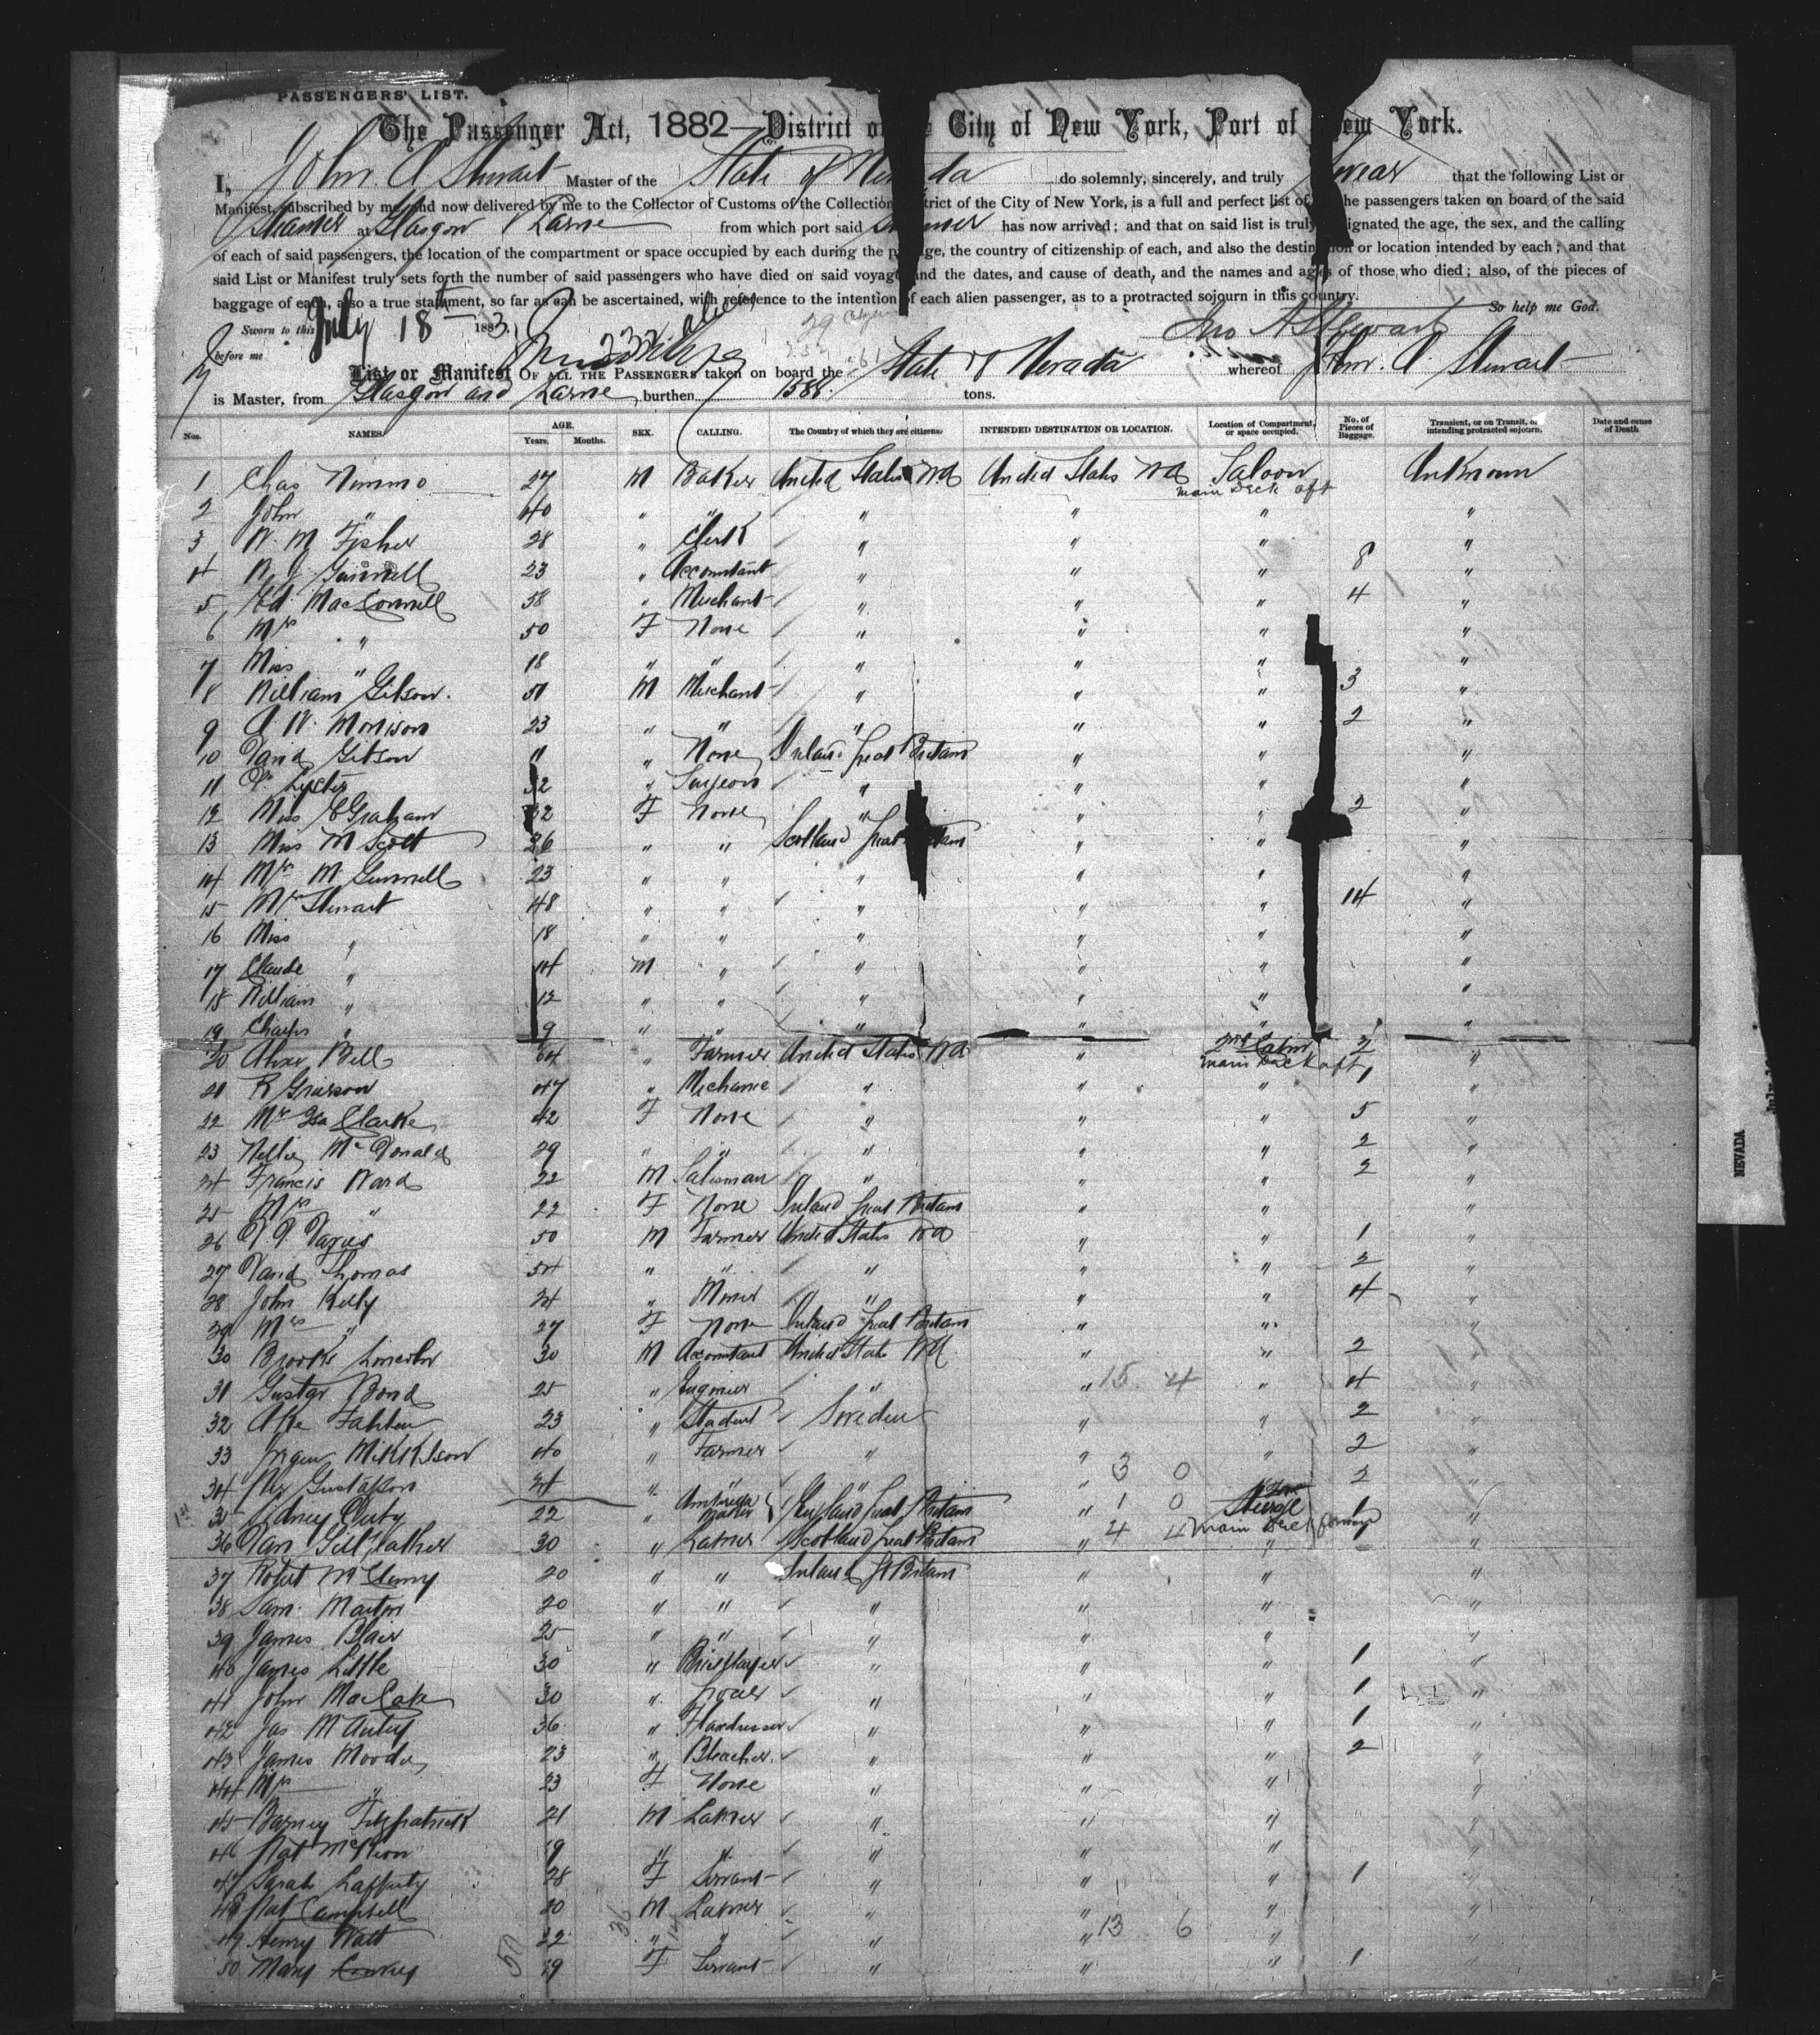 PASSENGERS' LIST.
The Passenger Act, 1882—District o City of New York, Port of ew York.
I, John. A Stewart Master of the State of Ne da do solemnly, sincerely, and truly swear that the following List or
Manifest, subscribed by me, and now delivered by me to the Collector of Customs of the Collection trict of the City of New York, is a full and perfect list of he passengers taken on board of the said
Steamer at Glasgow & Larne from which port said Steamer has now arrived; and that on said list is truly ignated the age, the sex, and the calling
of each of said passengers, the location of the compartment or space occupied by each during the p ge, the country of citizenship of each, and also the destin on or location intended by each; and that
said List or Manifest truly sets forth the number of said passengers who have died on said voyage and the dates, and cause of death, and the names and ages of those who died; also, of the pieces of
baggage of each, also a true statement, so far as can be ascertained, with reference to the intention of each alien passenger, as to a protracted sojourn in this country. So help me God.
Sworn to this July 18th 1883. Jno A Stewart
before me
List or Manifest OF ALL THE PASSENGERS taken on board the State of Nevada whereof John. A. Stewart
is Master, from Glasgow and Larne, burthen 1588. tons.
Nos. NAMES. AGE. Years. Months. SEX. CALLING. The Country of which they are citizens. INTENDED DESTINATION OR LOCATION. Location of Compartment, or space occupied. No. of Pieces of Baggage. Transient, or on Transit, or intending protracted sojourn. Date and cause of Death
1 Chas Nimmo 27 M Baker United States Na United States Na Saloon main deck aft Unknown
2 John " 40 " " " " " "
3 W. M Fisher 28 " Clerk " " " "
4 R. J. Gunnell 23 " Accountant " " " 8 "
5 Ed. MacConnell 58 " Merchant " " " 4 "
6 Mrs " 50 F None " " " "
7 Miss " 18 " " " " " "
8 William Gibson. 51 M Merchant " " " 3 "
9 A W. Morrison 23 " " " " " 2 "
10 David Gibson 11 " None Ireland Great Britain " " "
11 Dr Lyster 32 " Surgeon " " " "
12 Miss E Graham 22 F None " " " 2 "
13 Miss M Scott 26 " " Scotland Great Britain " " "
14 Mrs M. Gunnell 23 " " " " " "
15 Mrs Stewart 48 " " " " " 14 "
16 Miss " 18 " " " " " "
17 Claude " 14 M " " " " "
18 William " 12 " " " " " "
19 Charles " 9 " " " " " "
20 Alexr Bell 64 " Farmer United States Na " 2nd Cabin main deck aft 2 "
21 R Grierson 47 " Mechanic " " " 1 "
22 Mrs Isa Clarke 42 F None " " " 5 "
23 Nellie McDonald 29 " " " " " 2 "
24 Francis Ward 22 M Salesman " " " 2 "
25 Mrs " 22 F None Ireland Great Britain " " "
26 50 M Farmer United States Na " " 1 "
27 David Thomas 54 " " " " " 2 "
28 John Kelly 24 " Miner " " " 4 "
29 Mrs " 27 F None Ireland Great Britain " " "
30 Brooks Lincoln 30 M Accountant United States Na " " 2 "
31 Gustav Bond 25 " Engineer " " 15 4 " 4 "
32 23 " Student Sweden " " 2 "
33 Jorgen Mikkelson 40 " Farmer " " " 2 "
34 Per Gustafson 24 " " " " 3 0 " 2 "
35 Sidney Duty 22 " Umbrella maker England Great Britain " 1 0 Steerage main deck forward 1 "
36 Dan Gillflather 30 " Laborer Scotland Great Britain " 4 4 " 1 "
37 Robert McClemy 20 " " Ireland Gt Britain " "
38 Sam. Martin 20 " " " " " "
39 James Blair 25 " " " " "
40 James Little 30 " Bricklayer " " " 1 "
41 John MacCake 30 " Grocer " " " 1 "
42 Jas McAuley 36 " Flaxdresser " " " 1 "
43 James Moodie 23 " Bleacher " " " 2 "
44 Mrs " 23 F None " " " "
45 Barney Fitzpatrick 21 M Laborer " " " "
46 Pat McKeon 19 " " " " " "
47 Sarah Lafferty 28 F Servant " " " 1 "
48 Pat Campbell 20 M Laborer " " " "
49 Henry Watt 22 " " " " 13 6 " "
50 Mary Conway 19 F Servant " " " 1 "
50 36 14
NEVADA